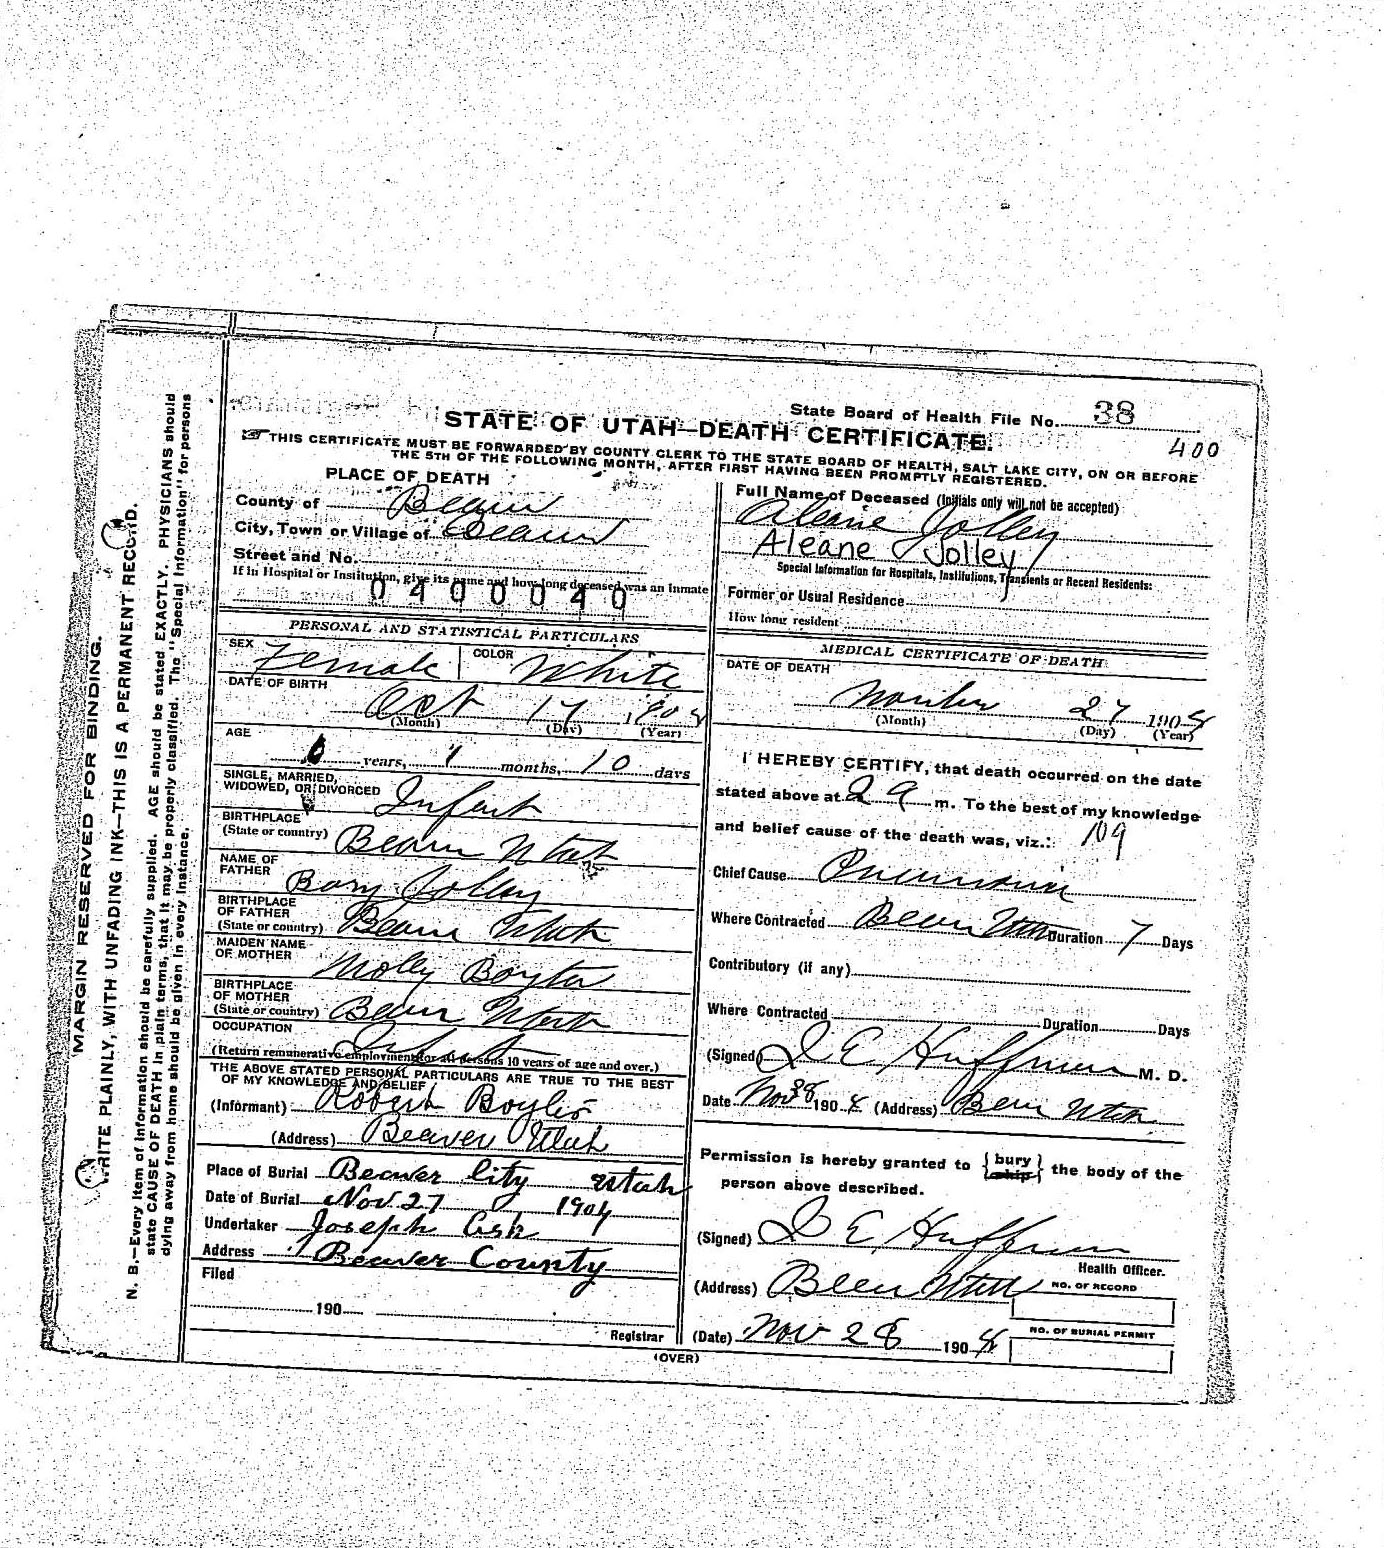 State Board of Health File No. 38
400
STATE OF UTAH—DEATH CERTIFICATE.
THIS CERTIFICATE MUST BE FORWARDED BY COUNTY CLERK TO THE STATE BOARD OF HEALTH, SALT LAKE CITY, ON OR BEFORE
THE 5TH OF THE FOLLOWING MONTH, AFTER FIRST HAVING BEEN PROMPTLY REGISTERED.
PLACE OF DEATH
County of Beaver
City, Town or Village of Beaver
Street and No.
If in Hospital or Institution, give its name and how long deceased was an inmate
0400040
Full Name of Deceased (Initials only will not be accepted)
Aleane Jolley
Aleane Jolley
Special Information for Hospitals, Institutions, Transients or Recent Residents:
Former or Usual Residence
How long resident
PERSONAL AND STATISTICAL PARTICULARS
SEX Female COLOR White
DATE OF BIRTH
Oct 17 190
(Month) (Day) (Year)
AGE
0 years, 1 months, 10 days
SINGLE, MARRIED,
WIDOWED, OR DIVORCED Infant
BIRTHPLACE
(State or country) Beaver Utah
NAME OF
FATHER Jolley
BIRTHPLACE
OF FATHER
(State or country) Beaver Utah
MAIDEN NAME
OF MOTHER Molly Boyter
BIRTHPLACE
OF MOTHER
(State or country) Beaver Utah
OCCUPATION Infant
(Return remunerative employment for all persons 10 years of age and over.)
THE ABOVE STATED PERSONAL PARTICULARS ARE TRUE TO THE BEST
OF MY KNOWLEDGE AND BELIEF
(Informant) Robert
(Address) Beaver Utah
Place of Burial Beaver City Utah
Date of Burial Nov 27 1904
Undertaker Joseph
Address Beaver County
Filed
190
Registrar
MEDICAL CERTIFICATE OF DEATH
DATE OF DEATH
November 27 1904
(Month) (Day) (Year)
I HEREBY CERTIFY, that death occurred on the date
stated above at 2 a m. To the best of my knowledge
and belief cause of the death was, viz.: 109
Chief Cause Pneumonia
Where Contracted Beaver Utah Duration 7 Days
Contributory (if any)
Where Contracted Duration Days
(Signed) E Huffman M. D.
Date Nov 28 1904 (Address) Beaver Utah
Permission is hereby granted to {bury ship} the body of the
person above described.
(Signed) E Huffman
Health Officer.
(Address) Beaver Utah
NO. OF RECORD
NO. OF BURIAL PERMIT
(Date) Nov 28 1904
(OVER)
MARGIN RESERVED FOR BINDING.
WRITE PLAINLY, WITH UNFADING INK—THIS IS A PERMANENT RECORD.
N. B.—Every item of information should be carefully supplied. AGE should be stated EXACTLY. PHYSICIANS should
state CAUSE OF DEATH in plain terms, that it may be properly classified. The "Special Information" for persons
dying away from home should be given in every instance.